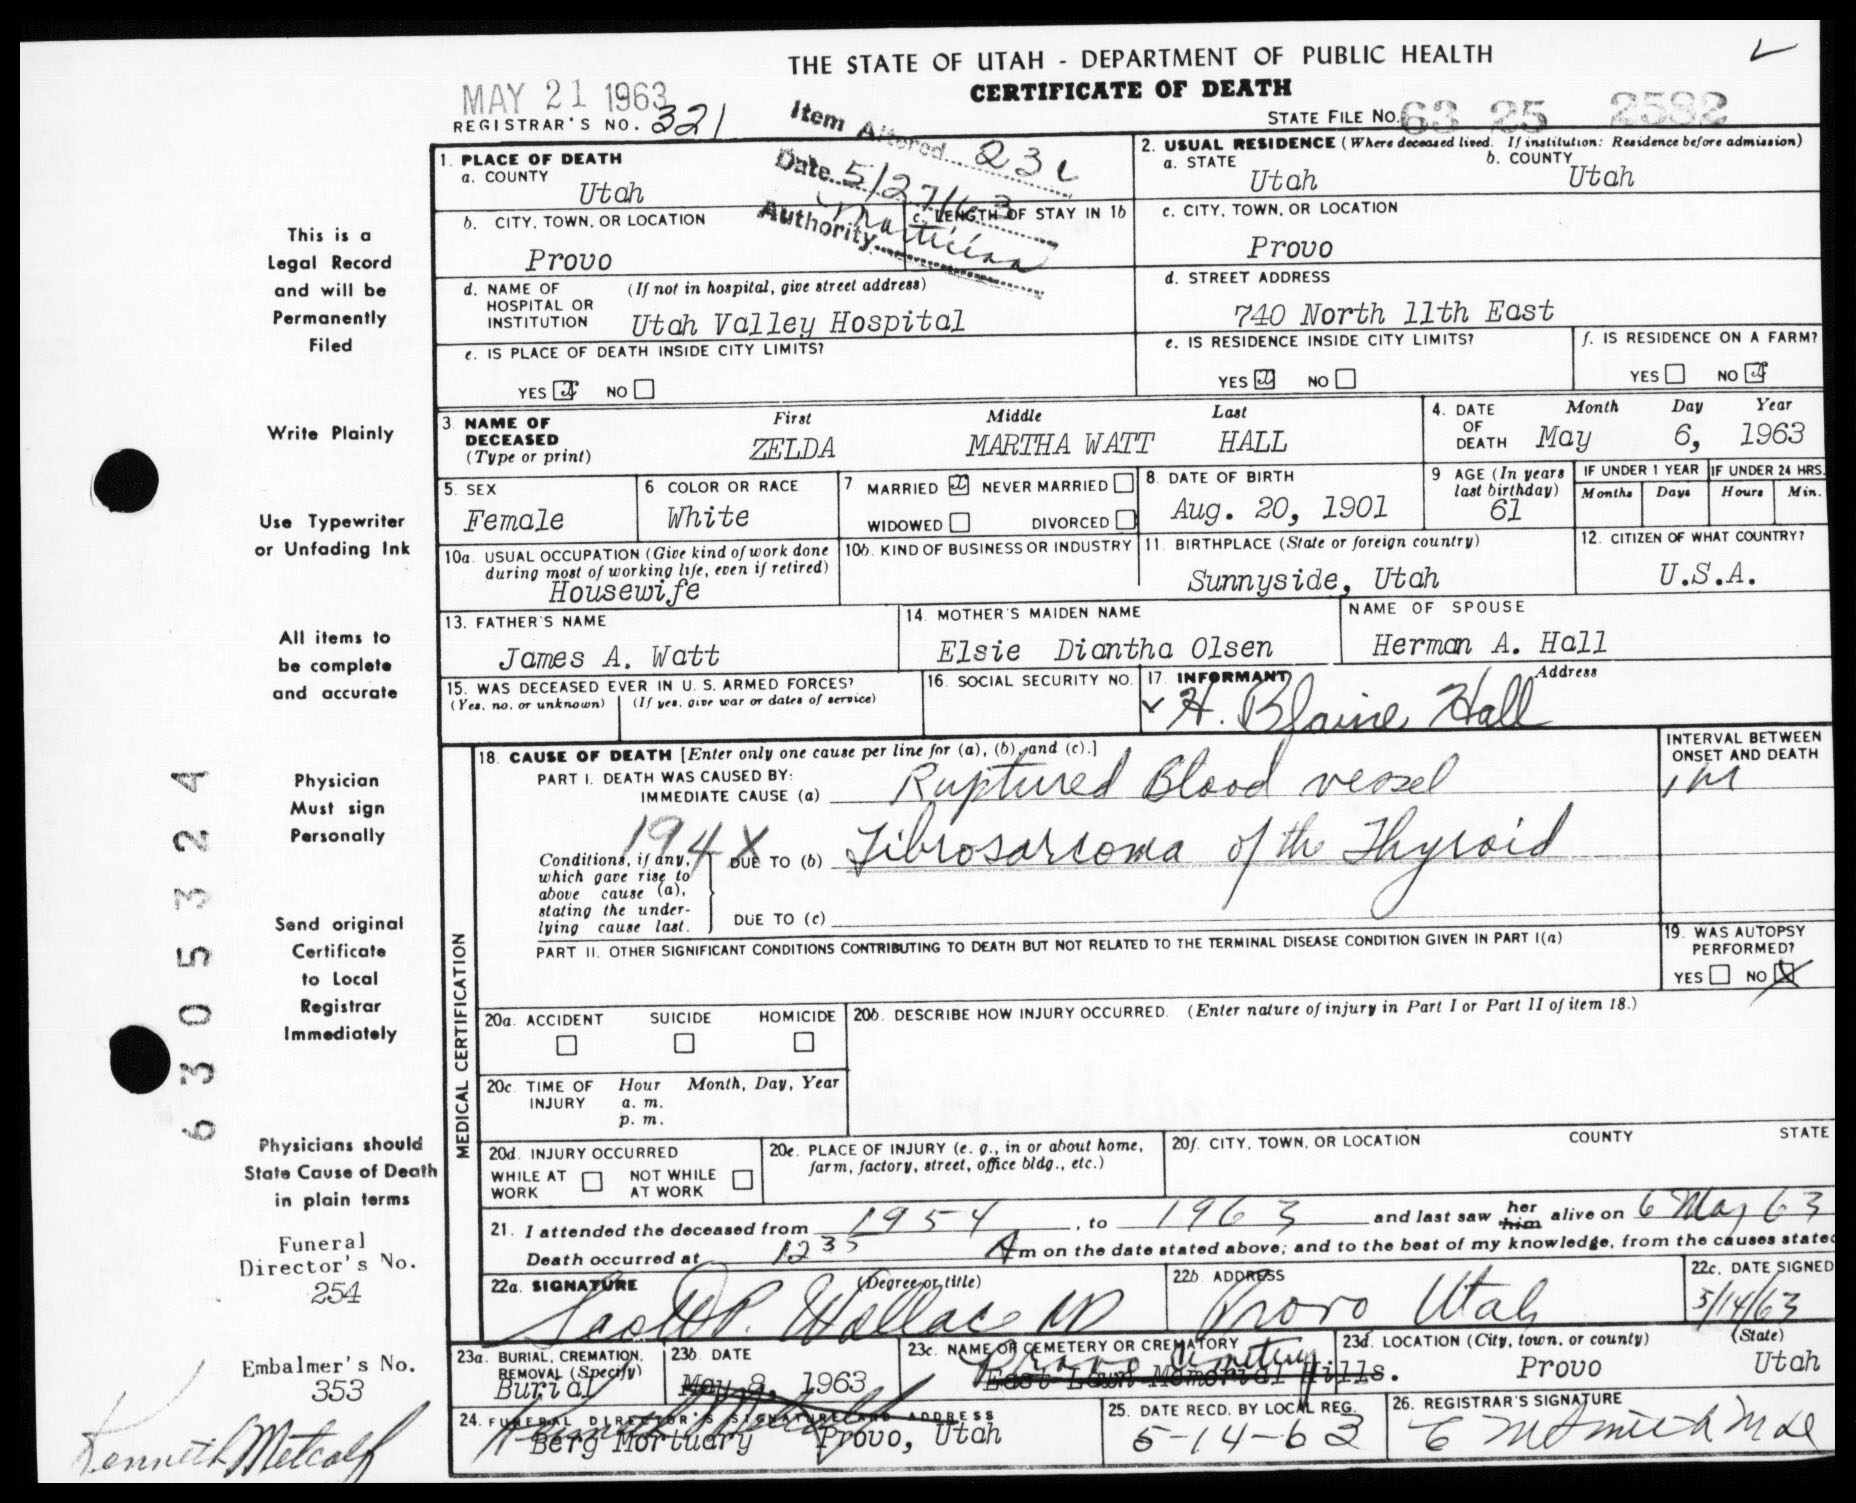 THE STATE OF UTAH - DEPARTMENT OF PUBLIC HEALTH
CERTIFICATE OF DEATH
MAY 21 1963
REGISTRAR'S NO. 321
STATE FILE NO. 63 25 2582
Item Altered 23c
Date 5/27/63
Authority Mortician
1. PLACE OF DEATH
a. COUNTY
Utah
b. CITY, TOWN, OR LOCATION
Provo
c. LENGTH OF STAY IN 1b
d. NAME OF HOSPITAL OR INSTITUTION (If not in hospital, give street address)
Utah Valley Hospital
e. IS PLACE OF DEATH INSIDE CITY LIMITS?
YES X NO
2. USUAL RESIDENCE (Where deceased lived. If institution: Residence before admission)
a. STATE
Utah
b. COUNTY
Utah
c. CITY, TOWN, OR LOCATION
Provo
d. STREET ADDRESS
740 North 11th East
e. IS RESIDENCE INSIDE CITY LIMITS?
YES X NO
f. IS RESIDENCE ON A FARM?
YES NO X
3 NAME OF DECEASED (Type or print)
First Middle Last
ZELDA MARTHA WATT HALL
4. DATE OF DEATH
Month Day Year
May 6, 1963
5. SEX
Female
6 COLOR OR RACE
White
7 MARRIED X NEVER MARRIED
WIDOWED DIVORCED
8. DATE OF BIRTH
Aug. 20, 1901
9 AGE (In years last birthday)
61
IF UNDER 1 YEAR
Months Days
IF UNDER 24 HRS.
Hours Min.
10a. USUAL OCCUPATION (Give kind of work done
during most of working life, even if retired)
Housewife
10b. KIND OF BUSINESS OR INDUSTRY
11. BIRTHPLACE (State or foreign country)
Sunnyside, Utah
12. CITIZEN OF WHAT COUNTRY?
U.S.A.
13. FATHER'S NAME
James A. Watt
14. MOTHER'S MAIDEN NAME
Elsie Diantha Olsen
NAME OF SPOUSE
Herman A. Hall
15. WAS DECEASED EVER IN U. S. ARMED FORCES?
(Yes, no, or unknown) (If yes, give war or dates of service)
16. SOCIAL SECURITY NO.
17 INFORMANT Address
H. Blaine Hall
MEDICAL CERTIFICATION
18. CAUSE OF DEATH [Enter only one cause per line for (a), (b), and (c).]
PART I. DEATH WAS CAUSED BY:
IMMEDIATE CAUSE (a) Ruptured Blood vessel
INTERVAL BETWEEN ONSET AND DEATH
194X
Conditions, if any,
which gave rise to
above cause (a),
stating the under-
lying cause last.
DUE TO (b) Fibrosarcoma of the Thyroid
DUE TO (c)
PART II. OTHER SIGNIFICANT CONDITIONS CONTRIBUTING TO DEATH BUT NOT RELATED TO THE TERMINAL DISEASE CONDITION GIVEN IN PART I(a)
19. WAS AUTOPSY PERFORMED?
YES NO X
20a. ACCIDENT SUICIDE HOMICIDE
20b. DESCRIBE HOW INJURY OCCURRED. (Enter nature of injury in Part I or Part II of item 18.)
20c. TIME OF INJURY
Hour Month, Day, Year
a. m.
p. m.
20d. INJURY OCCURRED
WHILE AT WORK NOT WHILE AT WORK
20e. PLACE OF INJURY (e. g., in or about home,
farm, factory, street, office bldg., etc.)
20f. CITY, TOWN, OR LOCATION COUNTY STATE
21. I attended the deceased from 1954, to 1963 and last saw her him alive on 6 May 63
Death occurred at 12 35 Am on the date stated above; and to the best of my knowledge, from the causes stated
22a. SIGNATURE (Degree or title)
Scott P. Wallace MD
22b. ADDRESS
Provo Utah
22c. DATE SIGNED
5/14/63
23a. BURIAL, CREMATION, REMOVAL (Specify)
Burial
23b. DATE
May 9, 1963
23c. NAME OF CEMETERY OR CREMATORY
Provo Cemetery
East Lawn Memorial Hills.
23d. LOCATION (City, town, or county) (State)
Provo Utah
24. FUNERAL DIRECTOR'S SIGNATURE AND ADDRESS
Berg Mortuary Provo, Utah
25. DATE RECD. BY LOCAL REG.
5-14-63
26. REGISTRAR'S SIGNATURE
This is a
Legal Record
and will be
Permanently
Filed
Write Plainly
Use Typewriter
or Unfading Ink
All items to
be complete
and accurate
Physician
Must sign
Personally
Send original
Certificate
to Local
Registrar
Immediately
Physicians should
State Cause of Death
in plain terms
Funeral
Director's No.
254
Embalmer's No.
353
Kenneth Metcalf
6305324